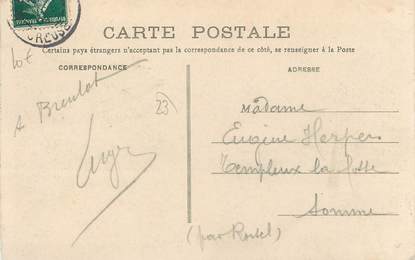 CREUSE
CARTE POSTALE
Certains pays étrangers n'acceptant pas la correspondance de ce côté, se renseigner à la Poste
CORRESPONDANCE
ADRESSE
lot
A Breulot
23
Madame
Eugène Herpers
Templeux la fosse
Somme
(par Roisel)